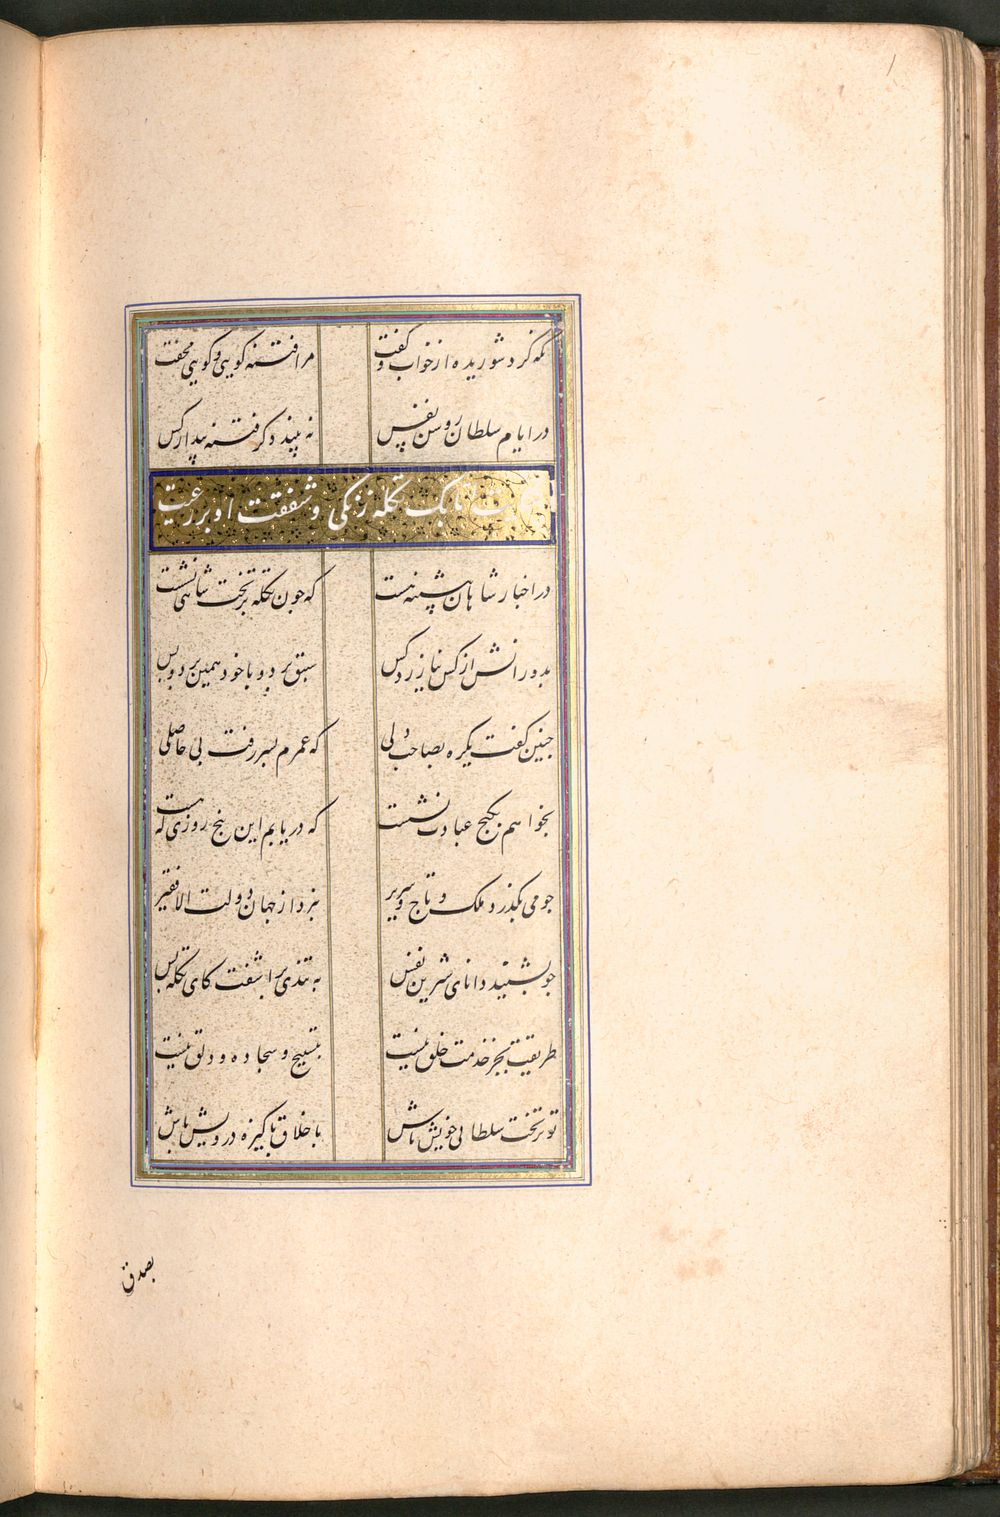 نگه کرد شوریده از خواب و گفت مرا فتنه گویی و گویی مخفت
در ایام سلطان روشن نفس نه بیند دگر فتنه بیدار کس
حکایت اتابک تکله زنگی و شفقت او بر رعیت
در اخبار شاهان پیشینه هست که چون تکله بر تخت شاهی نشست
بدورانش از کس نیازرد کس سبق برد و با خود همین برد و بس
چنین کفت یکره بصاحب دلی که عمرم بسر رفت بی حاصلی
بخواهم بکنج عبادت نشست که دریابم این پنج روزی که هست
چو می بکذرد ملک و تاج و سریر نبرد از جهان دولت الا فقیر
چو بشنید دانای شیرین نفس به تندی برآشفت کای تکله بس
طریقت بجز خدمت خلق نیست بتسبیح و سجاده و دلق نیست
تو بر تخت سلطانی خویش باش باخلاق پاکیزه درویش باش
بصدق